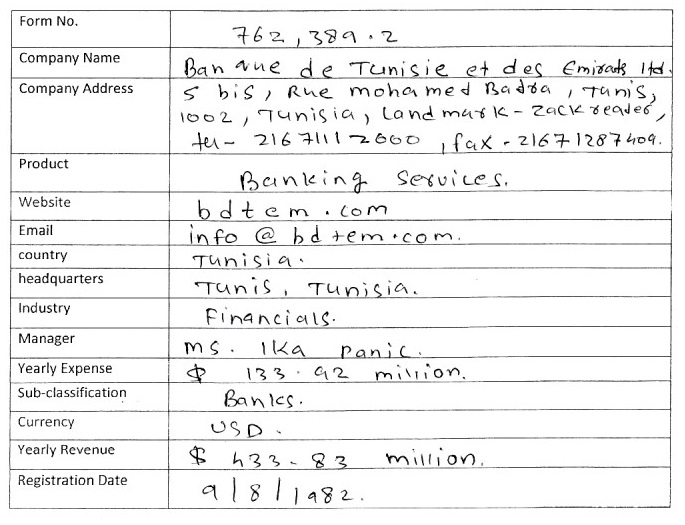 Form No. 762,389.2
Company Name Banque de Tunisie et des Emirats ltd.
Company Address 5 bis, Rue mohamed Badra, Tunis,
1002, Tunisia, Landmark - Zack reader,
tel - 21671112000, fax - 21671287409.
Product Banking Services.
Website bdtem.com
Email info@bdtem.com.
country Tunisia.
headquarters Tunis, Tunisia.
Industry Financials.
Manager ms. Ika panic.
Yearly Expense $ 133.92 million.
Sub-classification Banks.
Currency USD.
Yearly Revenue $ 433.83 million.
Registration Date 9/8/1982.